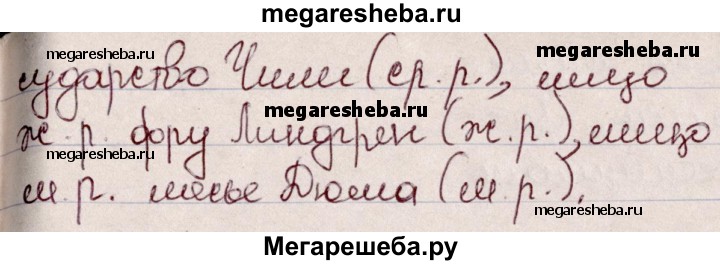 megaresheba.ru
megaresheba.ru
megaresheba.ru
сударство Чили (ср. р.), лицо
megaresheba.ru
ж. р. фру Линдгрен (ж. р.), лицо
megaresheba.ru
megaresheba.ru
м. р. месье Дюма (м. р.).
megaresheba.ru
Мегарешеба.ру